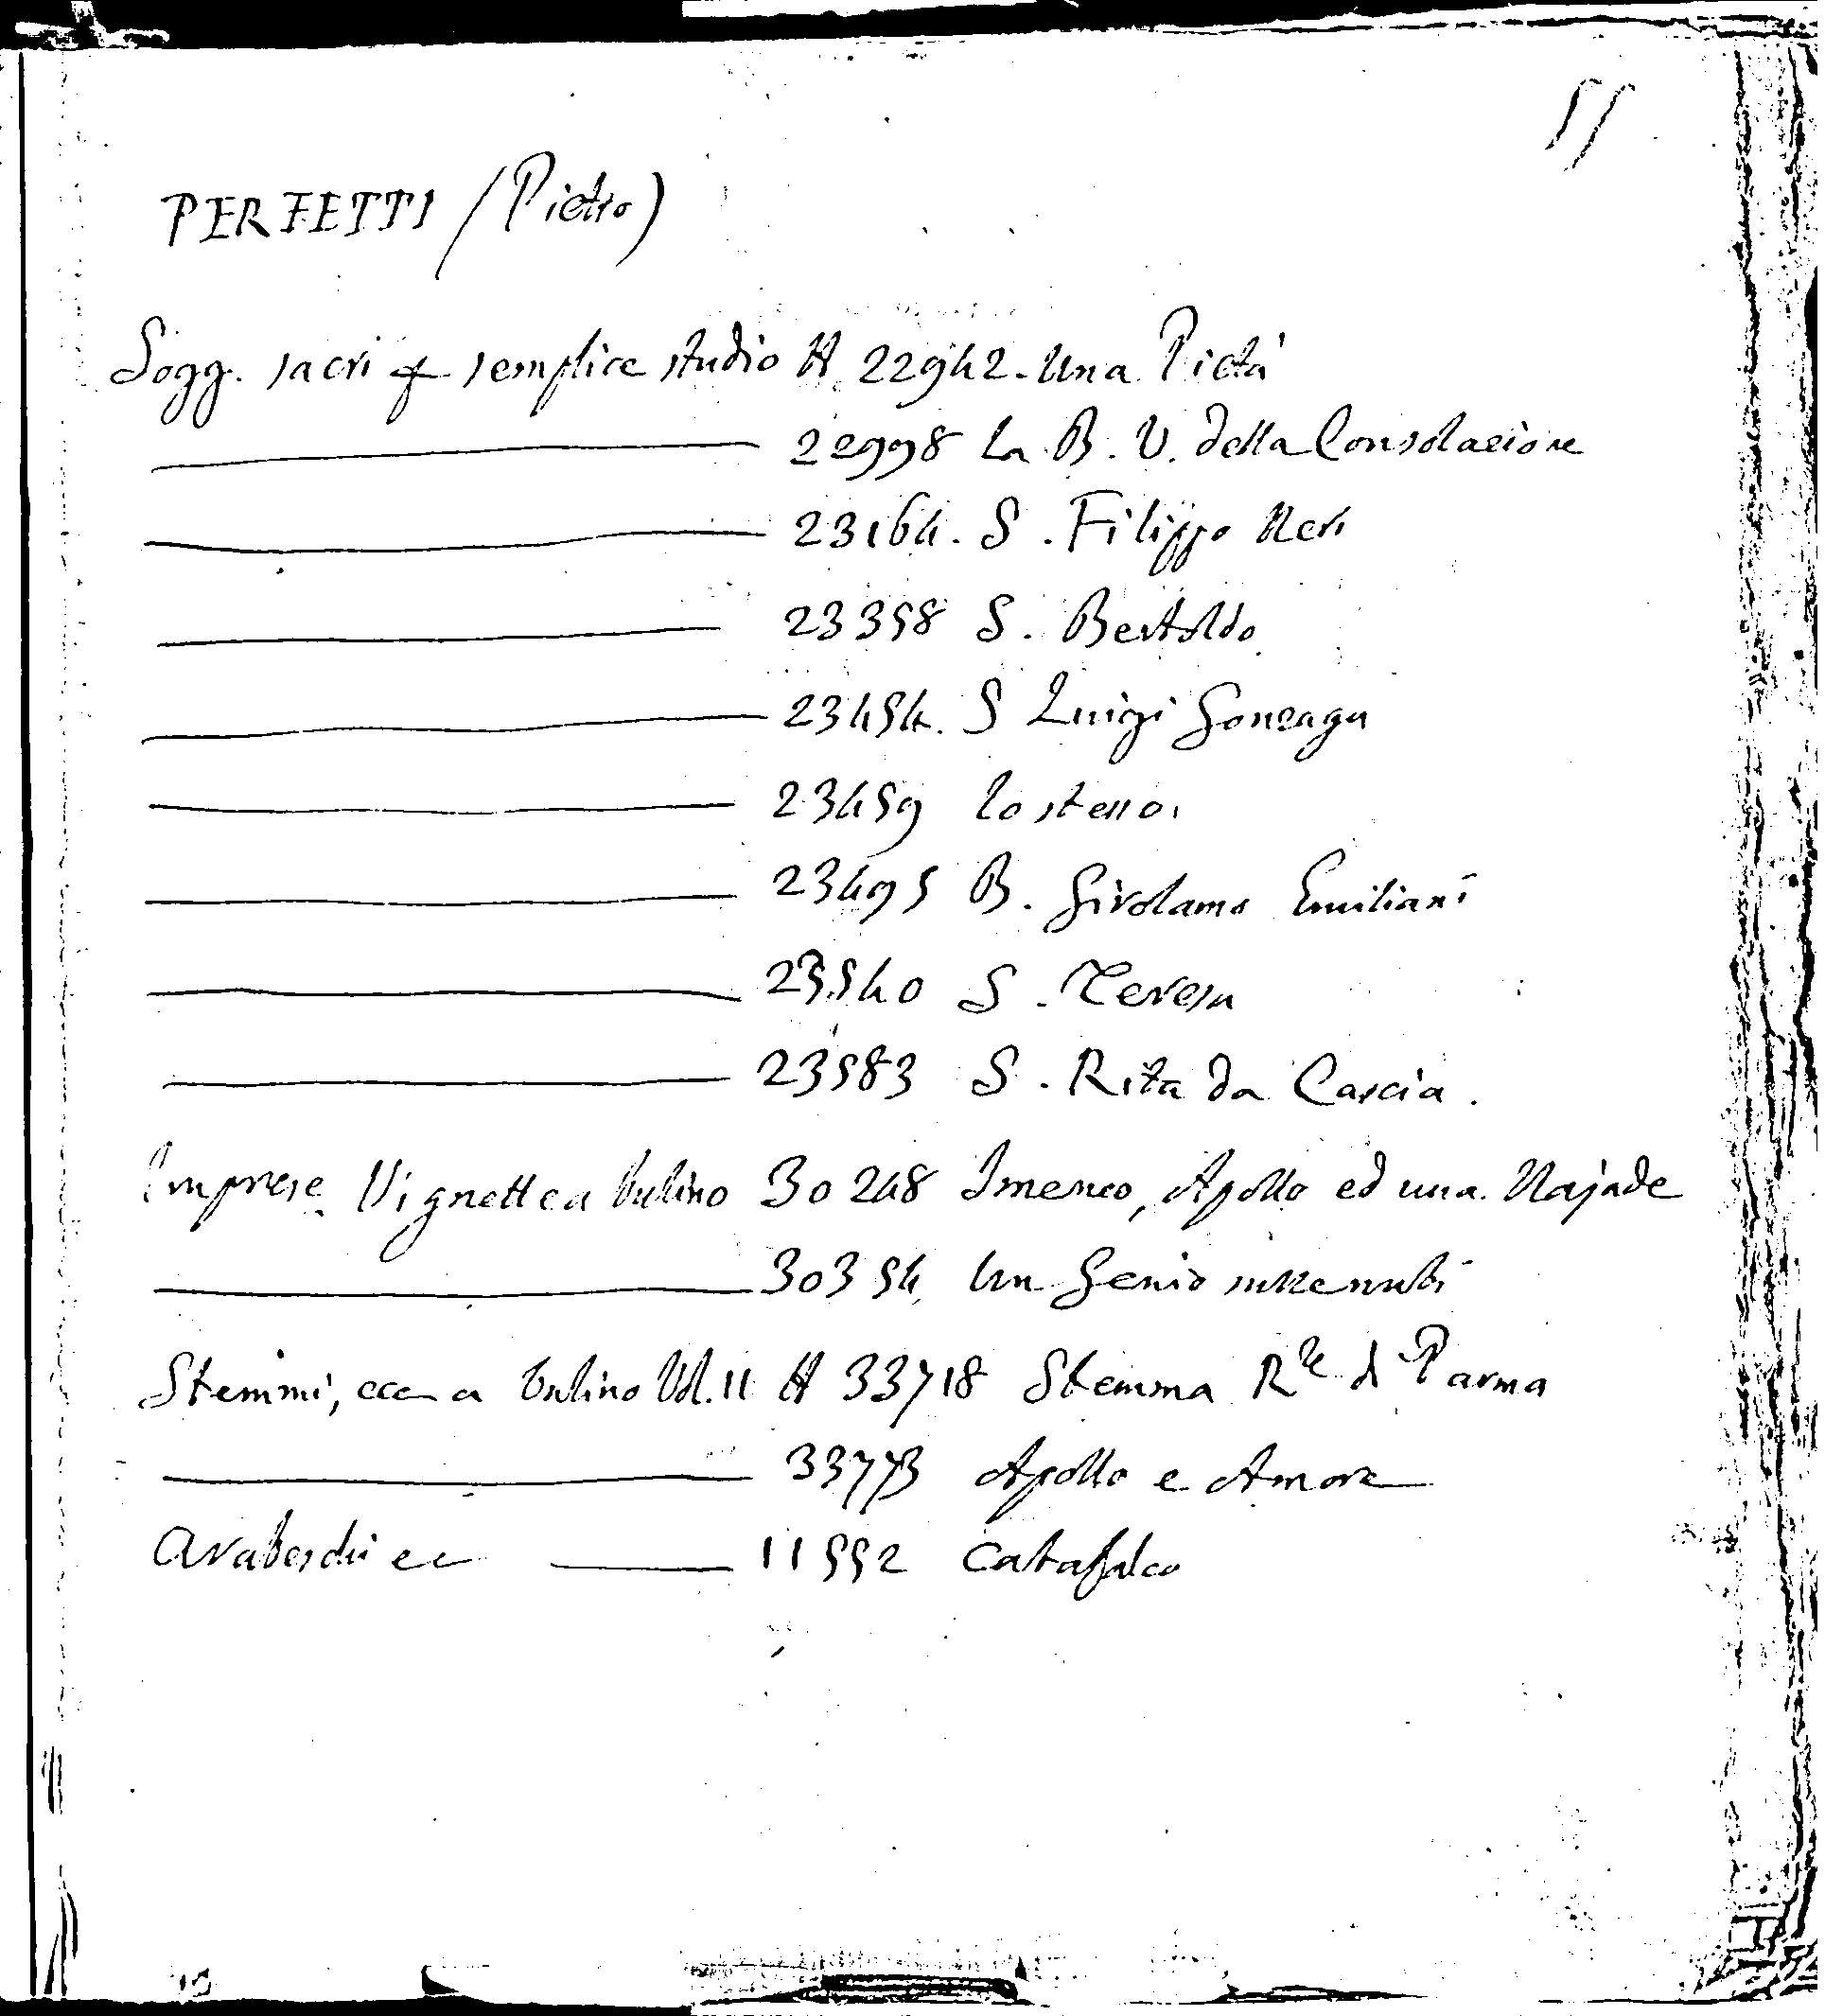 55
PERFETTI (Pietro)
Sogg. sacri p semplice studio N. 22942. Una Pietà
22998 La B. V. della Consolazione
23164. S. Filippo Neri
23358 S. Bertoldo
23454. S Luigi Gonzaga
23459 lo stesso.
23495 B. Girolamo Emiliani
23540 S. Teresa
23583 S. Rita da Cascia.
Imprese Vignette a bulino 30248 Imeneo, Apollo ed una Najade
30354 Un Genio sulle nubi
Stemmi, ecc a bulino Vol. 11 N 33718 Stemma Rle di Parma
33773 Apollo e Amore
Arabeschi ec 11552 Catafalco